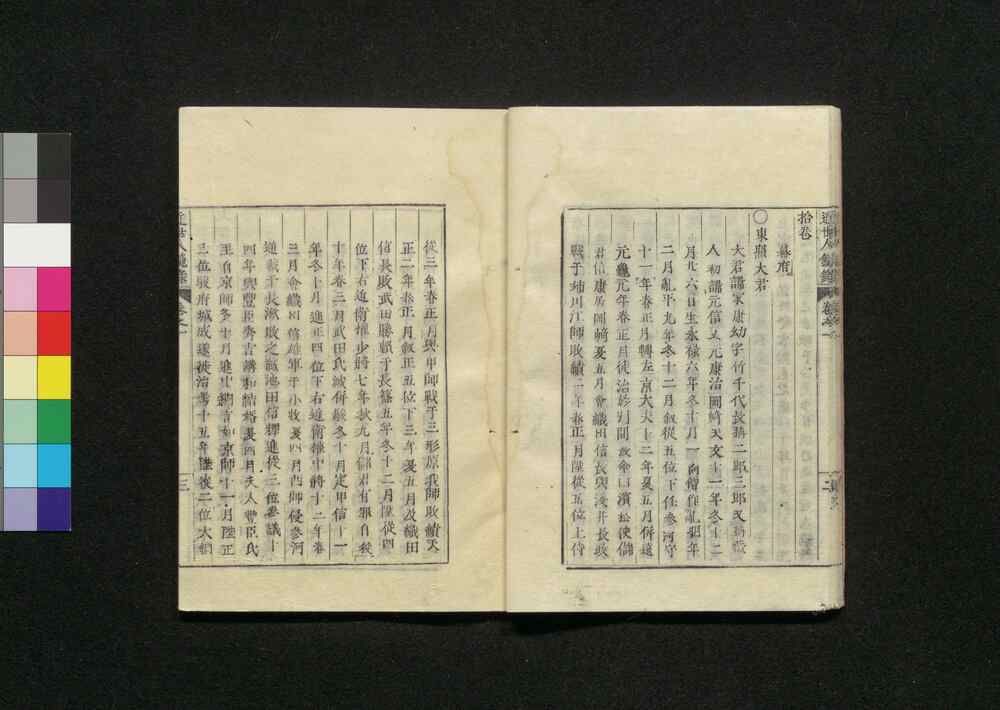 拾卷
幕府
〇東照大君
大君諱家康幼字竹千代長稱二郎三郎又稱藏
人初諱元信又元康治岡崎天文十一年冬十二
月廿六日生永祿六年冬十月一向僧作亂明年
二月亂平九年冬十二月叙從五位下任參河守
十一年春正月轉左京大夫十二年夏五月併遠
元龜元年春正月徒治於引間改命曰濱松使儲
君信康居岡崎夏五月會織田信長與淺井長政
戰于姉川江師敗績二年春正月陞從五位上侍
從三年春正月與甲師戰于三形原我師敗績天
正二年春正月叙正五位下三年夏五月及織田
信長敗武田勝賴于長篠五年冬十二月陞從四
位下右近衛權少將七年秋九月儲君有罪自殺
十年春三月武田氏滅併駿冬十月定甲信十一
年冬十月進正四位下右近衛權中將十二年春
三月會織田信雄軍于小牧夏四月西師侵參河
邀戰于長湫敗之殺池田信輝進從三位參議十
四年與豐臣秀吉講和結婚夏四月夫人豐臣氏
至自京師冬十月進中納言如京師十一月陞正
三位駿府城成遂徙治焉十五年陞從二位大納
近世人鏡錄
卷之一
三